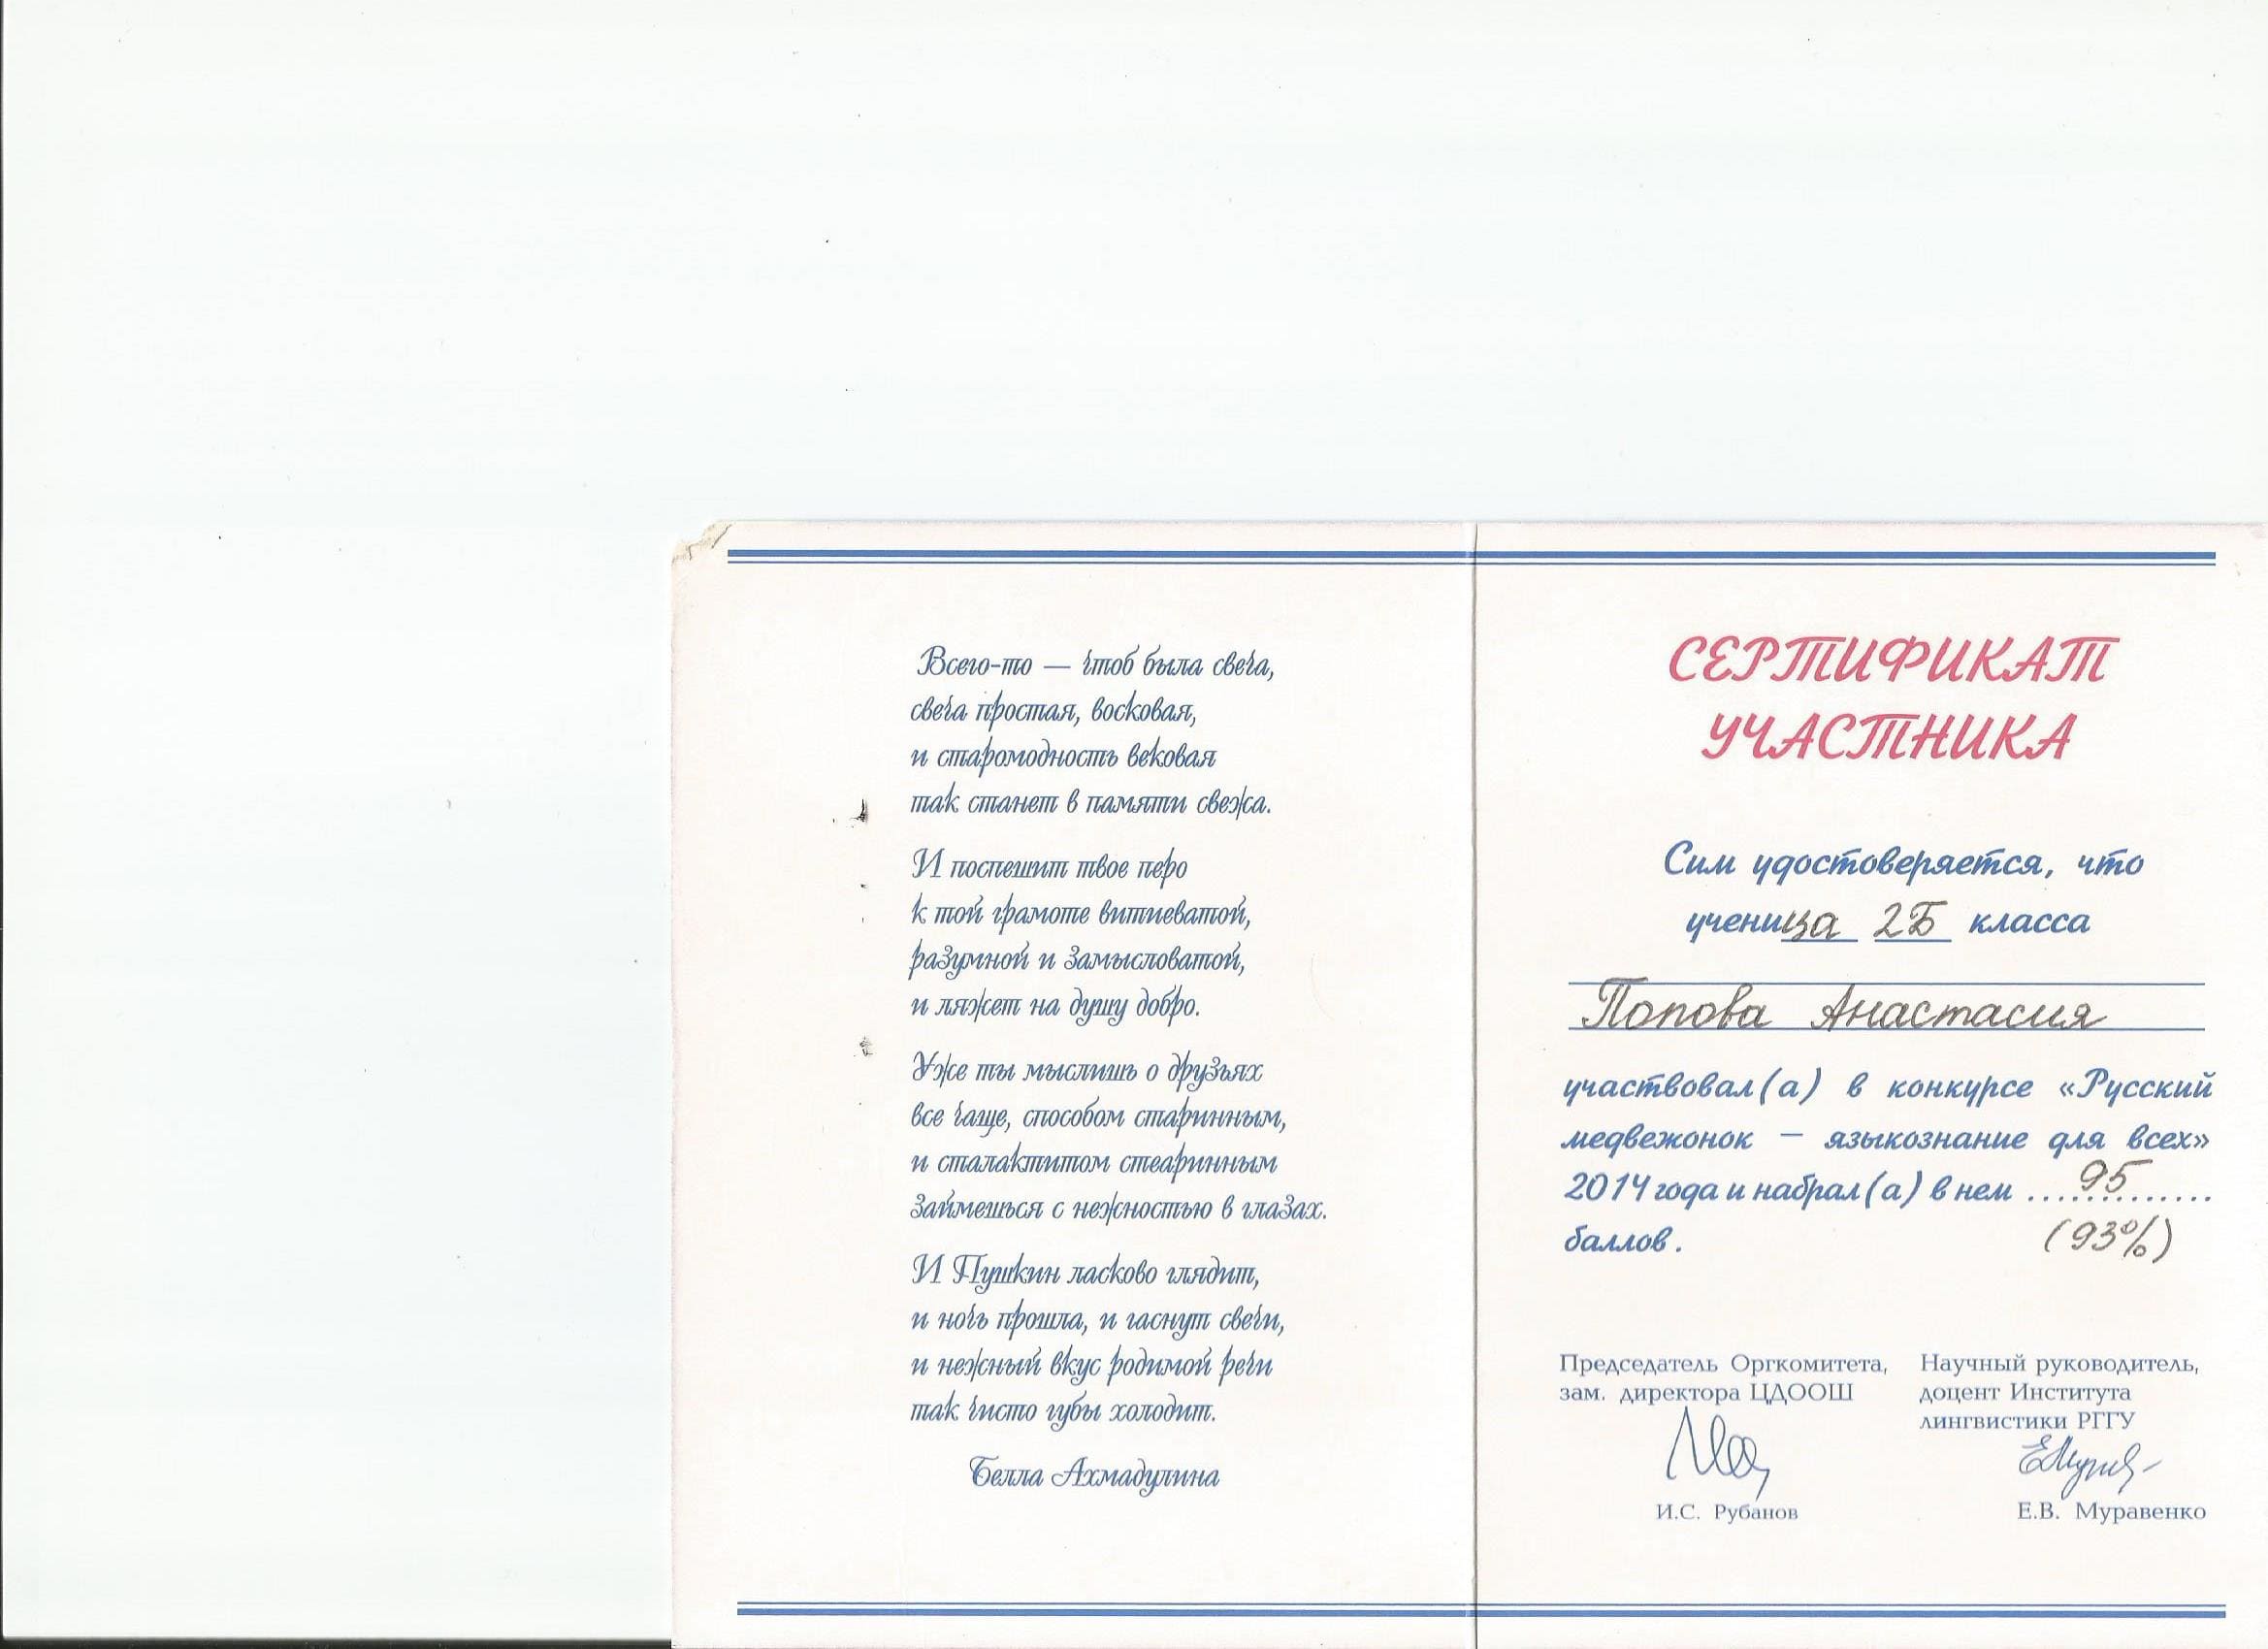 Всего-то — чтоб была свеча,
свеча простая, восковая,
и старомодность вековая
так станет в памяти свежа.
И поспешит твое перо
к той грамоте витиеватой,
разумной и замысловатой,
и ляжет на душу добро.
Уже ты мыслишь о друзьях
все чаще, способом старинным,
и сталактитом стеаринным
займешься с нежностью в глазах.
И Пушкин ласково глядит,
и ночь прошла, и гаснут свечи,
и нежный вкус родимой речи
так чисто губы холодит.
Белла Ахмадулина
СЕРТИФИКАТ
УЧАСТНИКА
Сим удостоверяется, что
ученица 2Б класса
Попова Анастасия
участвовал(а) в конкурсе «Русский
медвежонок — языкознание для всех»
2014 года и набрал(а) в нем 95
баллов. (93%)
Председатель Оргкомитета,
зам. директора ЦДООШ
И.С. Рубанов
Научный руководитель,
доцент Института
лингвистики РГГУ
Е.В. Муравенко